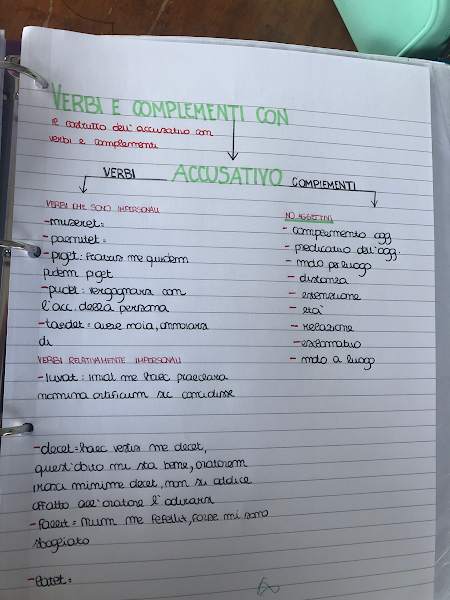 VERBI E COMPLEMENTI CON
il costrutto dell'accusativo con
verbi e complementi
VERBI ACCUSATIVO COMPLEMENTI
VERBI CHE SONO IMPERSONALI
-miseret=
-paenitet=
-piget: fratris me quidem
pudem piget
-pudet: vergognarsi con
l'acc. della persona
-taedet= avere noia, annoiarsi
di
VERBI RELATIVAMENTE IMPERSONALI
-iuvat: me haec praeclara
nomina artificum sic concidisse
-decet=haec vestis me decet,
quest'abito mi sta bene, oratorem
irasci minime decet, non si addice
affatto all'oratore l'adirarsi
-fallit= num me fefellit, forse mi sono
sbagliato
-latet=
NO AGGETTIVI
- complemento ogg
- predicativo dell'ogg.
- moto per luogo
- distanza
- estensione
- età
- relazione
- esclamativo
- moto a luogo